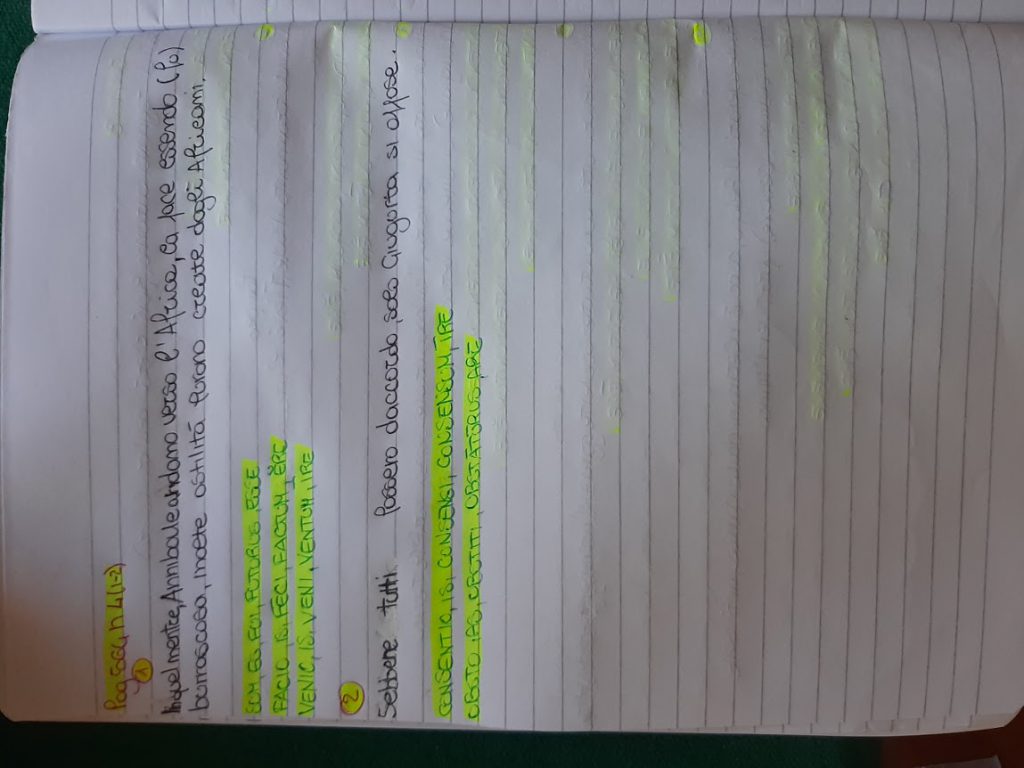 Pag 562, n 4 (1-2)
1
mentre, Annibale andamo verso l'Africa, la pace essendo (Pa)
burrascosa, molte ostilità furono creatte dagli Africami.
SUM, ES, FUI, FUTURUS, ESSE
FACIO, IS, FECI, FACTUM, ĔRE
VENIO, IS, VENI, VENTUM, IRE
2
Sebbene tutti fossero daccordo solo Giugurta si offose.
CONSENTIO, IS, CONSENSI, CONSENSUM, IRE
OBSTO, AS, OBSTITI, OBSTATURUS, ARE